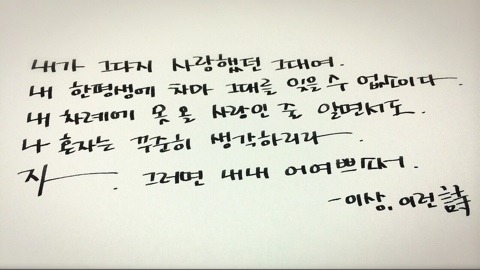 내가 그다지 사랑했던 그대여.
내 한평생에 차마 그대를 잊을 수 없소이다.
내 차례에 못 올 사랑인 줄 알면서도.
나 혼자는 꾸준히 생각하리라.
자. 그러면 내내 어여쁘소서.
-이상, 이런 詩